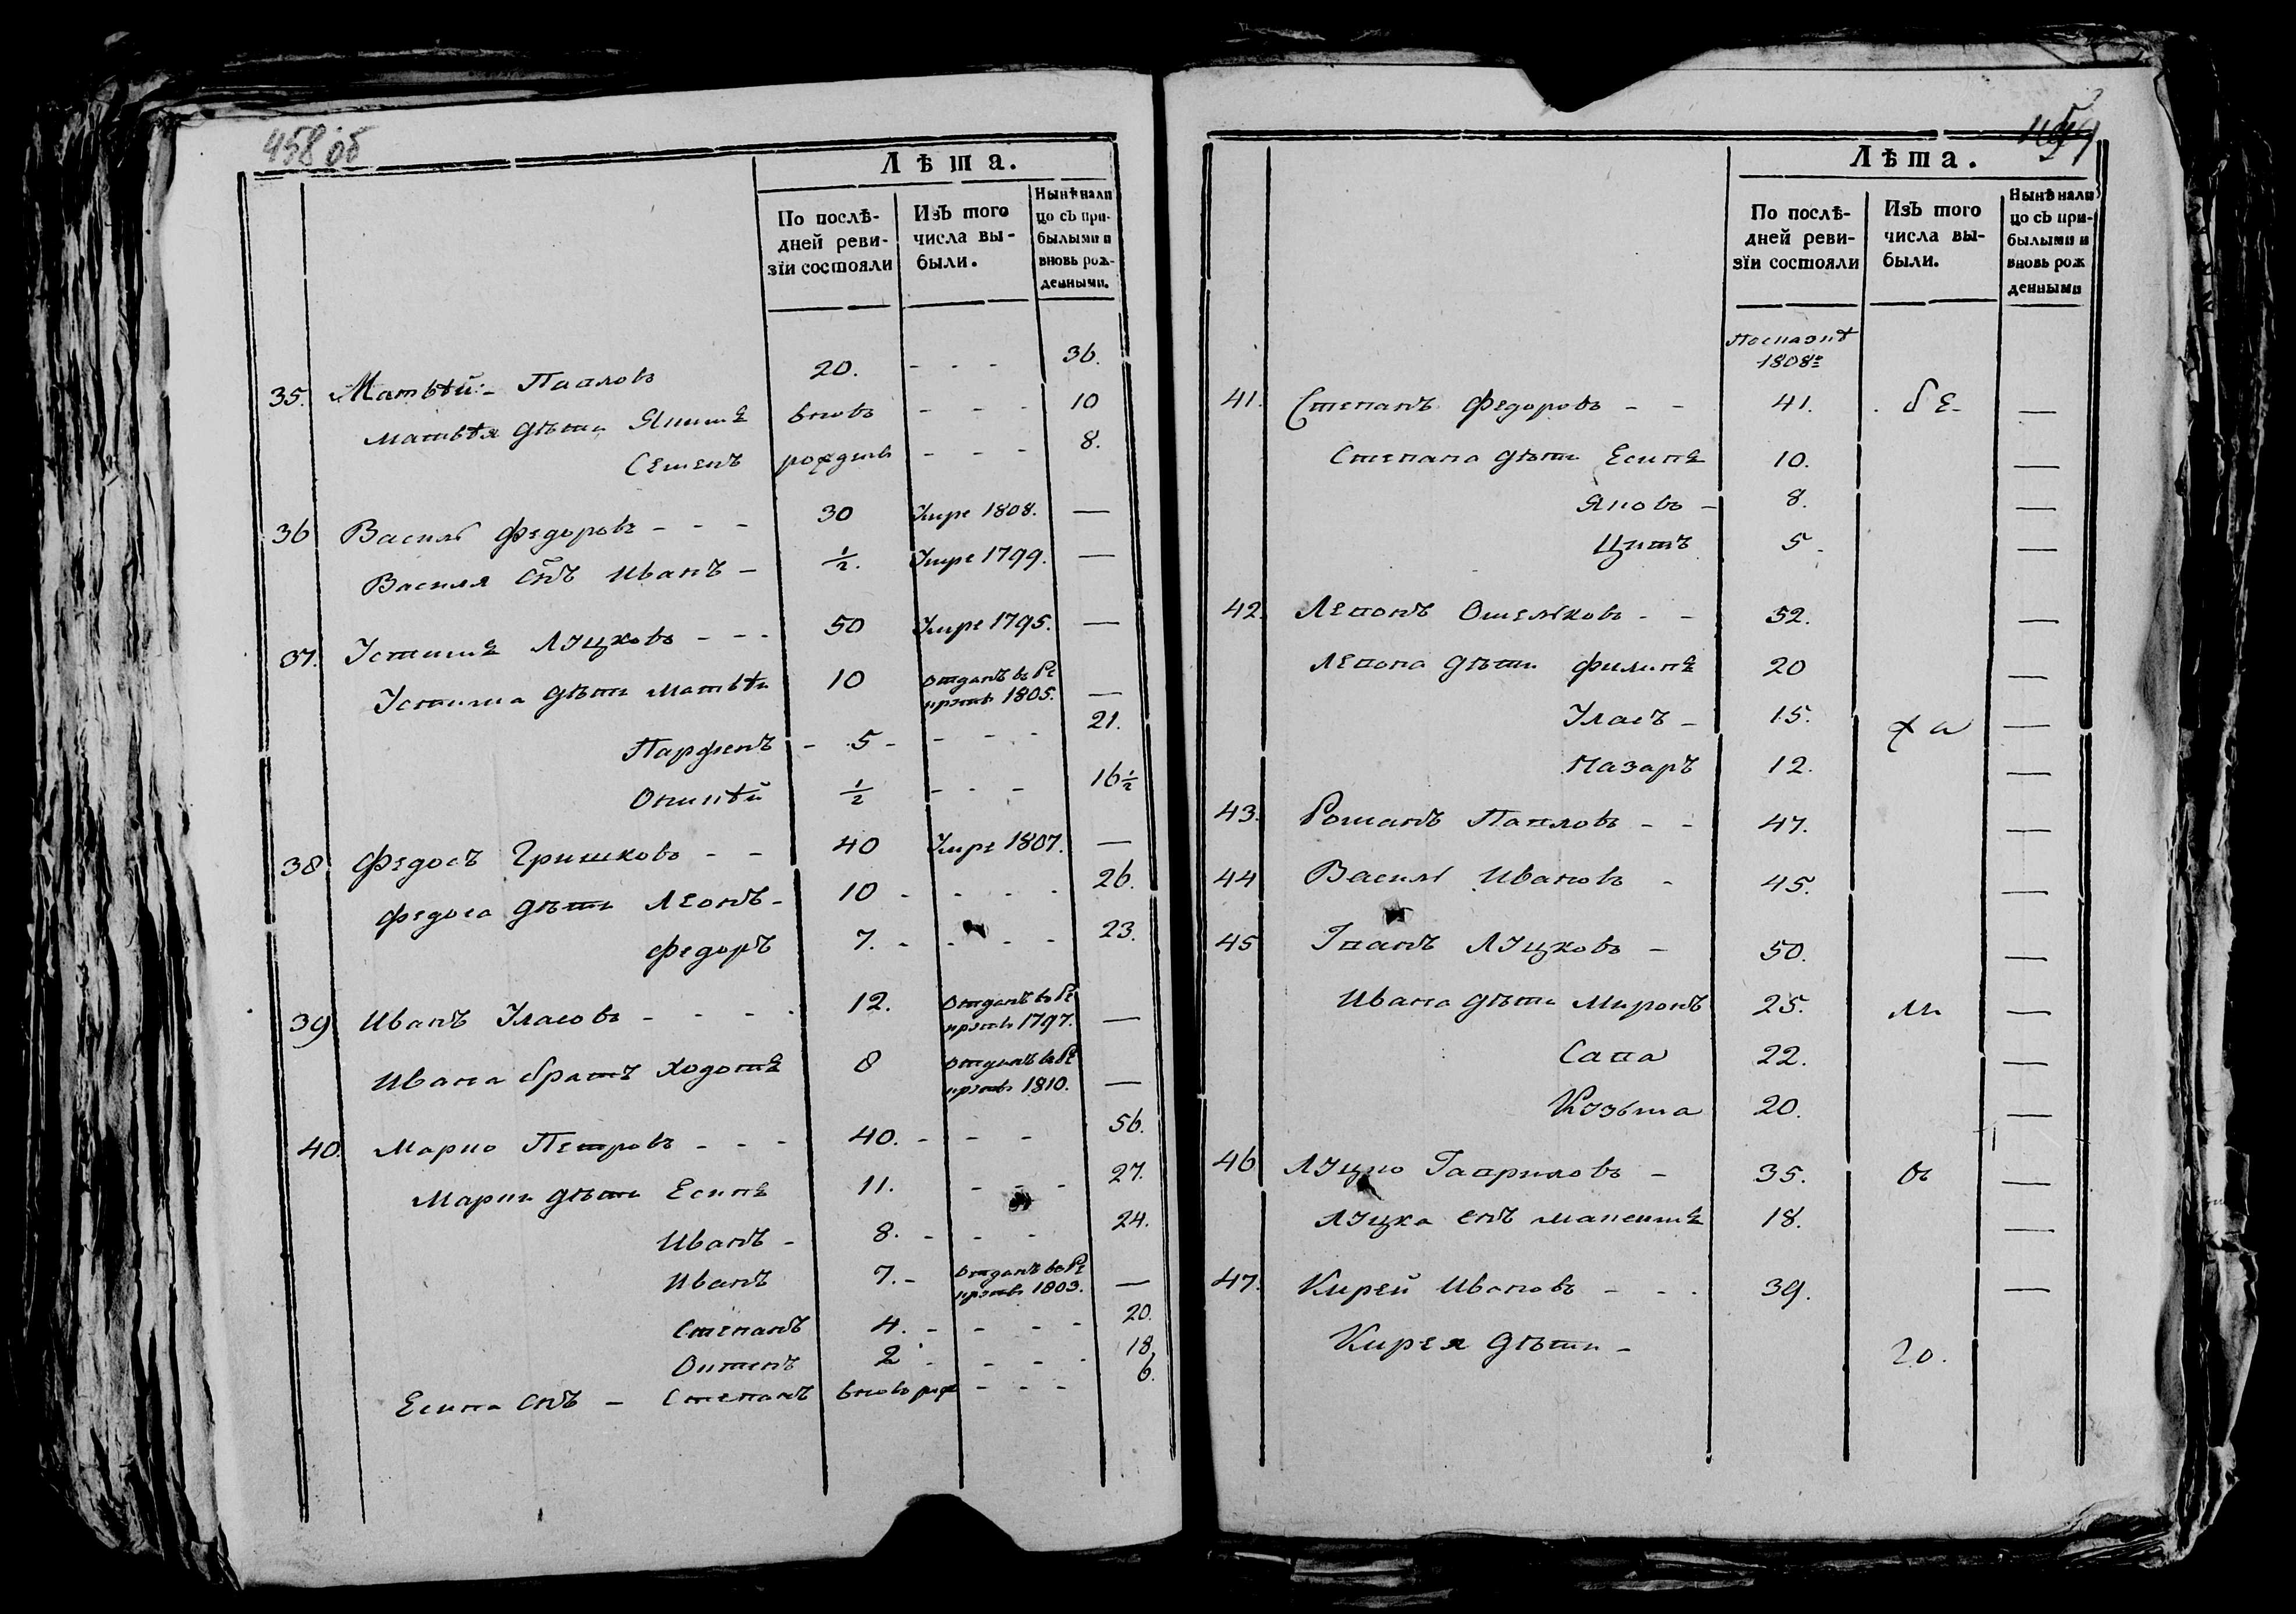 458 об
Лѣта.
По послѣ-
дней реви-
зіи состояли
Изъ того
числа вы-
были.
Нынѣ нали
цо съ при-
былыми и
вновь рож-
денными.
35. Матвѣй - Павловъ 20. - - - 36.
Матвѣя дѣти Якимъ вновь - - - 10
Семенъ рожденъ - - - 8.
36 Василь Федоровъ - - - 30 Умре 1808. —
Василя снъ Иванъ - 1/2. Умре 1799. —
37. Устимъ Луцковъ - - - 50 Умре 1795. —
Устима дѣти Матвѣй 10 Отданъ въ Ре
круты 1805. —
Парфенъ - 5 - - - - 21.
Оникѣй 1/2 - - - 16 1/2
38 Федосъ Гришковъ - - 40 Умре 1807. —
Федоса дѣти Леонъ - 10 - - - - 26.
Федоръ 7. - - - - 23.
39 Иванъ Уласовъ - - - - 12. Отданъ въ Ре
круты 1797. —
Ивана братъ Ходотъ 8 Отданъ въ Ре
круты 1810. —
40. Марко Петровъ - - - 40. - - - 56.
Марки дѣти Есипъ 11. - - - 27.
Иванъ - 8. - - - 24.
Иванъ 7. - Отданъ въ Ре
круты 1803. —
Степанъ 4. - - - - 20.
2 - - - - 18
Есипа снъ - Степанъ вновь рож - - - 6.
Лѣта.
По послѣ-
дней реви-
зіи состояли
Изъ того
числа вы-
были.
Нынѣ нали
цо съ при-
былыми и
вновь рож
денными
1808го
41. Степанъ Федоровъ - - 41. бе- —
Степана дѣти Есипъ 10. —
Яковъ - 8. —
Цитъ 5. —
42. Левонъ Омельковъ - - 52. —
Левона дѣти Филипъ 20 —
Уласъ - 15. жа —
Назаръ 12. —
43. Романъ Павловъ - - 47. —
44 Василь Ивановъ - 45. —
45 Иванъ Луцковъ - 50. —
Ивана дѣти Миронъ 25. ли —
Сава 22. —
Кузьма 20. —
46 Луцко Гавриловъ - 35. въ —
Луцка снъ Максимъ 18. —
47. Кирей Ивановъ - - - 39. —
Кирея дѣти - го.